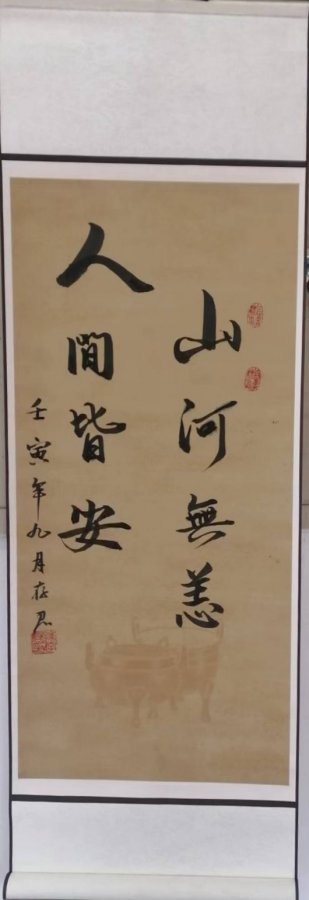 山河無恙
人間皆安
壬寅年九月存忍